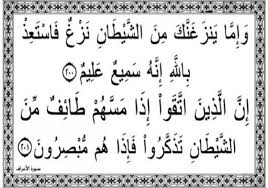 وَإِمَّا يَنزَغَنَّكَ مِنَ الشَّيْطَانِ نَزْغٌ فَاسْتَعِذْ
بِاللَّهِ إِنَّهُ سَمِيعٌ عَلِيمٌ ٢٠٠
إِنَّ الَّذِينَ اتَّقَوْا إِذَا مَسَّهُمْ طَائِفٌ مِّنَ
الشَّيْطَانِ تَذَكَّرُوا فَإِذَا هُم مُّبْصِرُونَ ٢٠١
سورة الأعراف